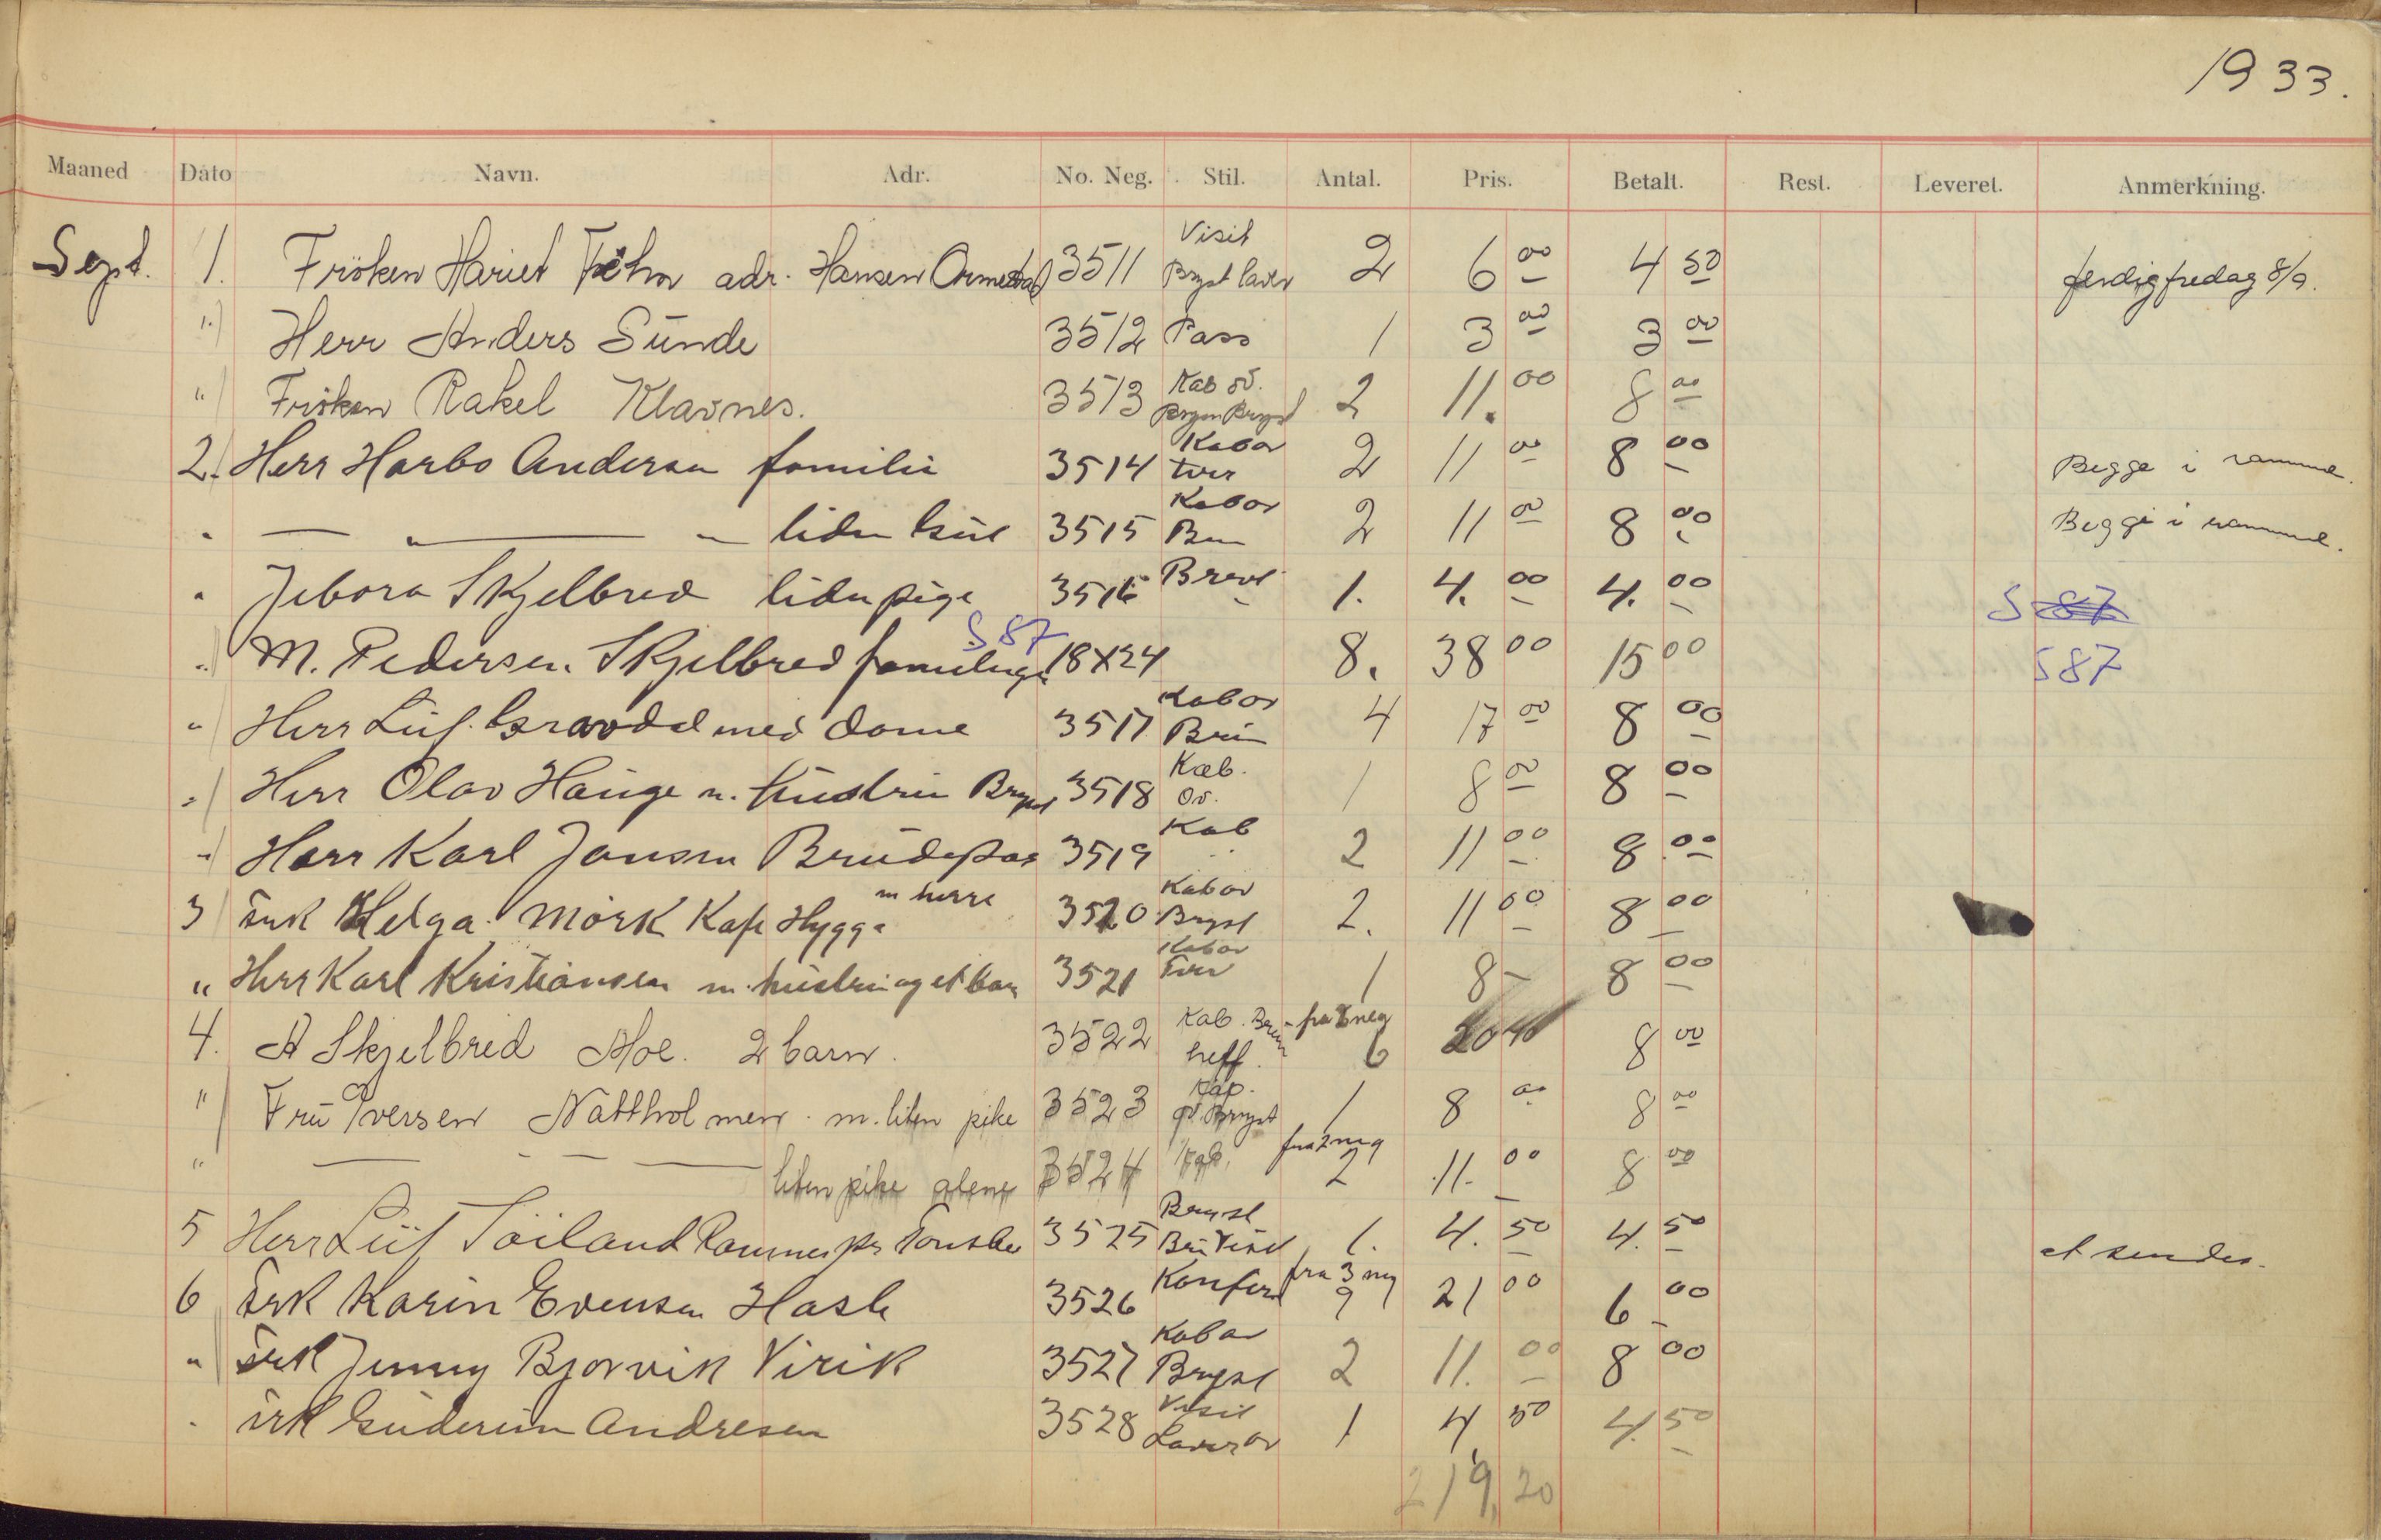 1933.
Maaned Dato Navn. Adr. No. Neg. Stil. Antal. Pris. Betalt. Rest. Leveret. Anmerkning.
Sept. 1. Fröken Hariet adr. Hansen 3511 Visit Bryst 2 6 00 4 50 ferdig fredag 8/9.
1. Herr Anders Sunde 3512 Pass 1 3 00 3 00
" Fröken Rakel Klavnes. 3513 Kab ov. Bryst 2 11.00 8 00
2. Herr Harbo Andersen familie 3514 Kabov tver 2 11 00 8 00 Begge i ramme.
" — " — " — liden 3515 Kabov 2 11 00 8 00 Begge i ramme.
" Skjelbred liden pige 3516 1. 4. 00 4. 00 S 87
S 87
" M. Pedersen. Skjelbred 18X24 8. 38 00 15 00 S87
" Herr Leif Gravdal med dame 3517 Kabov Brun 4 17 00 8 00
" Herr Olav Hauge m. hustru Bryst 3518 Kab. ov. 1 8 00 8 00
" Herr Karl Jansen Brudepar 3519 Kab 2 11 00 8 00
3 Frk Helga Mörk Kafe Hygge m herre 3520 Kabov Bryst 2. 11 00 8 00
" Herr Karl Kristiansen m. hustru og et barn 3521 Kabov Tver 1 8 - 8 00
4. A Skjelbred Moe. 2 barn. 3522 Kab. heff. fra neg 6 8 00
" Fru Iversen Nattholmen. m. liten pike 3523 Kap. ov. Bryst 1 8 00 8 00
" — " — liten pike alene 3524 Kab. fra 2 neg 2 11. 00 8 00
5 Herr Leif 3525 Bryst Visit 1. 4. 50 4. 50 at sendes.
6 Frk Karin Evensen Hasle 3526 Konfirm fra 3 neg 9 21 00 6 00
" Frk Jenny Bjorvik Virik 3527 Kabov Bryst 2 11. 00 8 00
" Frk Guderun Andresen 3528 Visit 1 4 50 4. 50
219,20